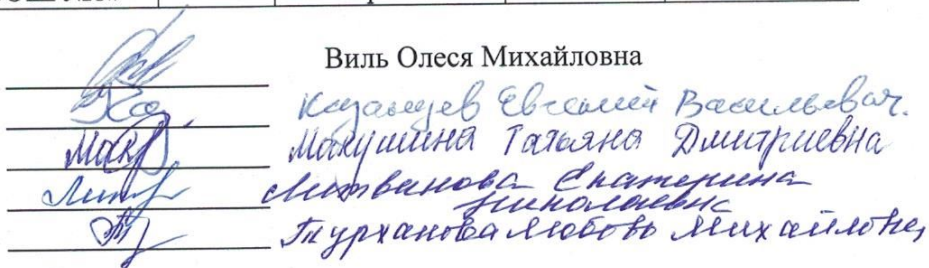 Виль Олеся Михайловна
Казанцев Евгений Васильевич.
Макушина Татьяна Дмитриевна
Литванова Екатерина
Николаевна
Турханова Любовь Михайловна